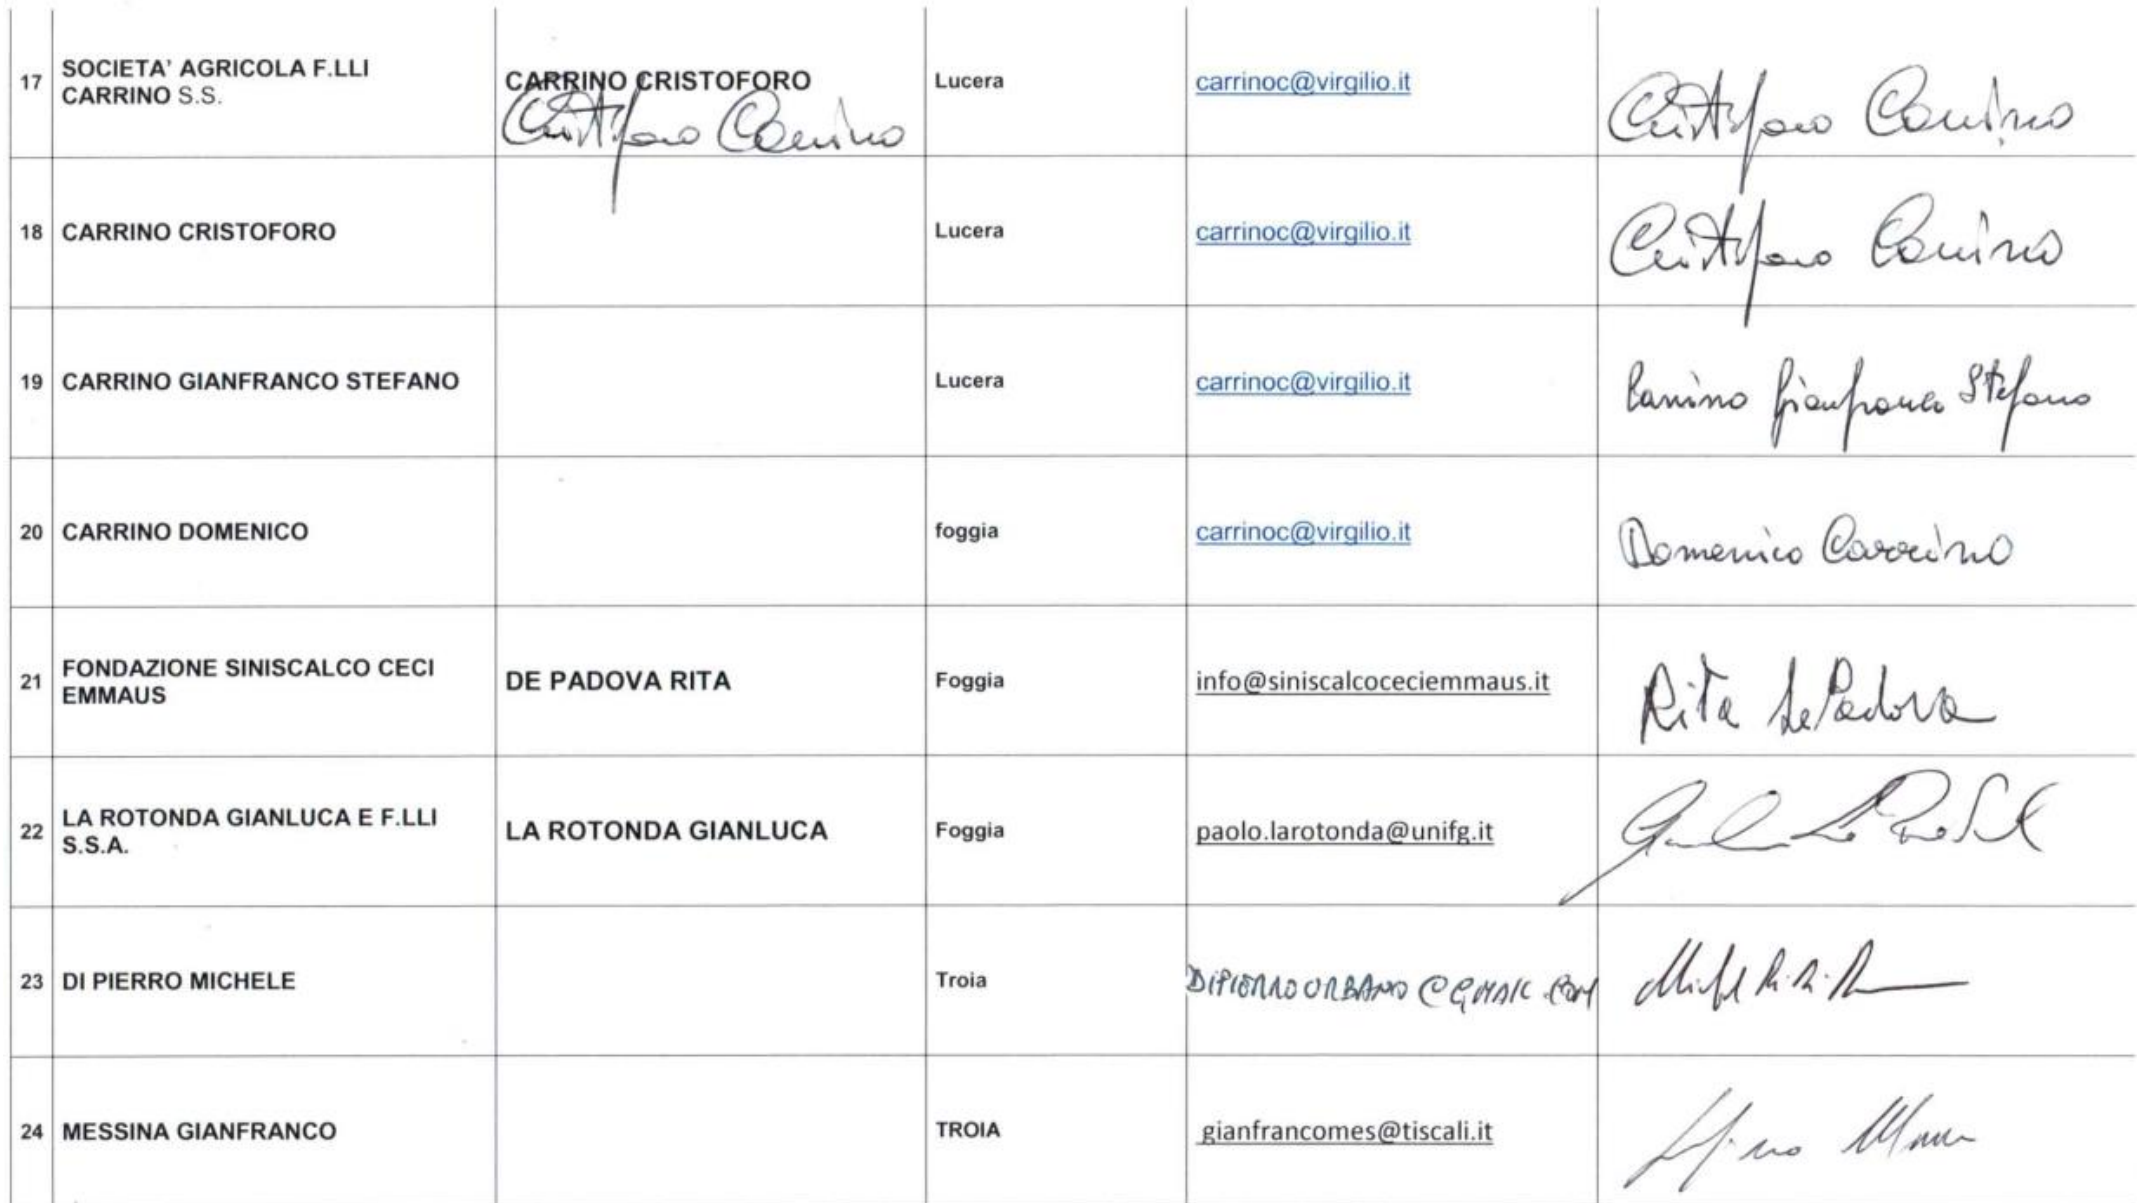 17 SOCIETA' AGRICOLA F.LLI
CARRINO S.S.
CARRINO CRISTOFORO
Cristoforo Carrino
Lucera
carrinoc@virgilio.it
Cristoforo Carrino
18 CARRINO CRISTOFORO
Lucera
carrinoc@virgilio.it
Cristoforo Carrino
19 CARRINO GIANFRANCO STEFANO
Lucera
carrinoc@virgilio.it
Carrino Gianfranco Stefano
20 CARRINO DOMENICO
foggia
carrinoc@virgilio.it
Domenico Carrino
21 FONDAZIONE SINISCALCO CECI
EMMAUS
DE PADOVA RITA
Foggia
info@siniscalcoceciemmaus.it
Rita De Padova
22 LA ROTONDA GIANLUCA E F.LLI
S.S.A.
LA ROTONDA GIANLUCA
Foggia
paolo.larotonda@unifg.it
23 DI PIERRO MICHELE
Troia
DIPIERROURBANO@GMAIL.COM
24 MESSINA GIANFRANCO
TROIA
gianfrancomes@tiscali.it